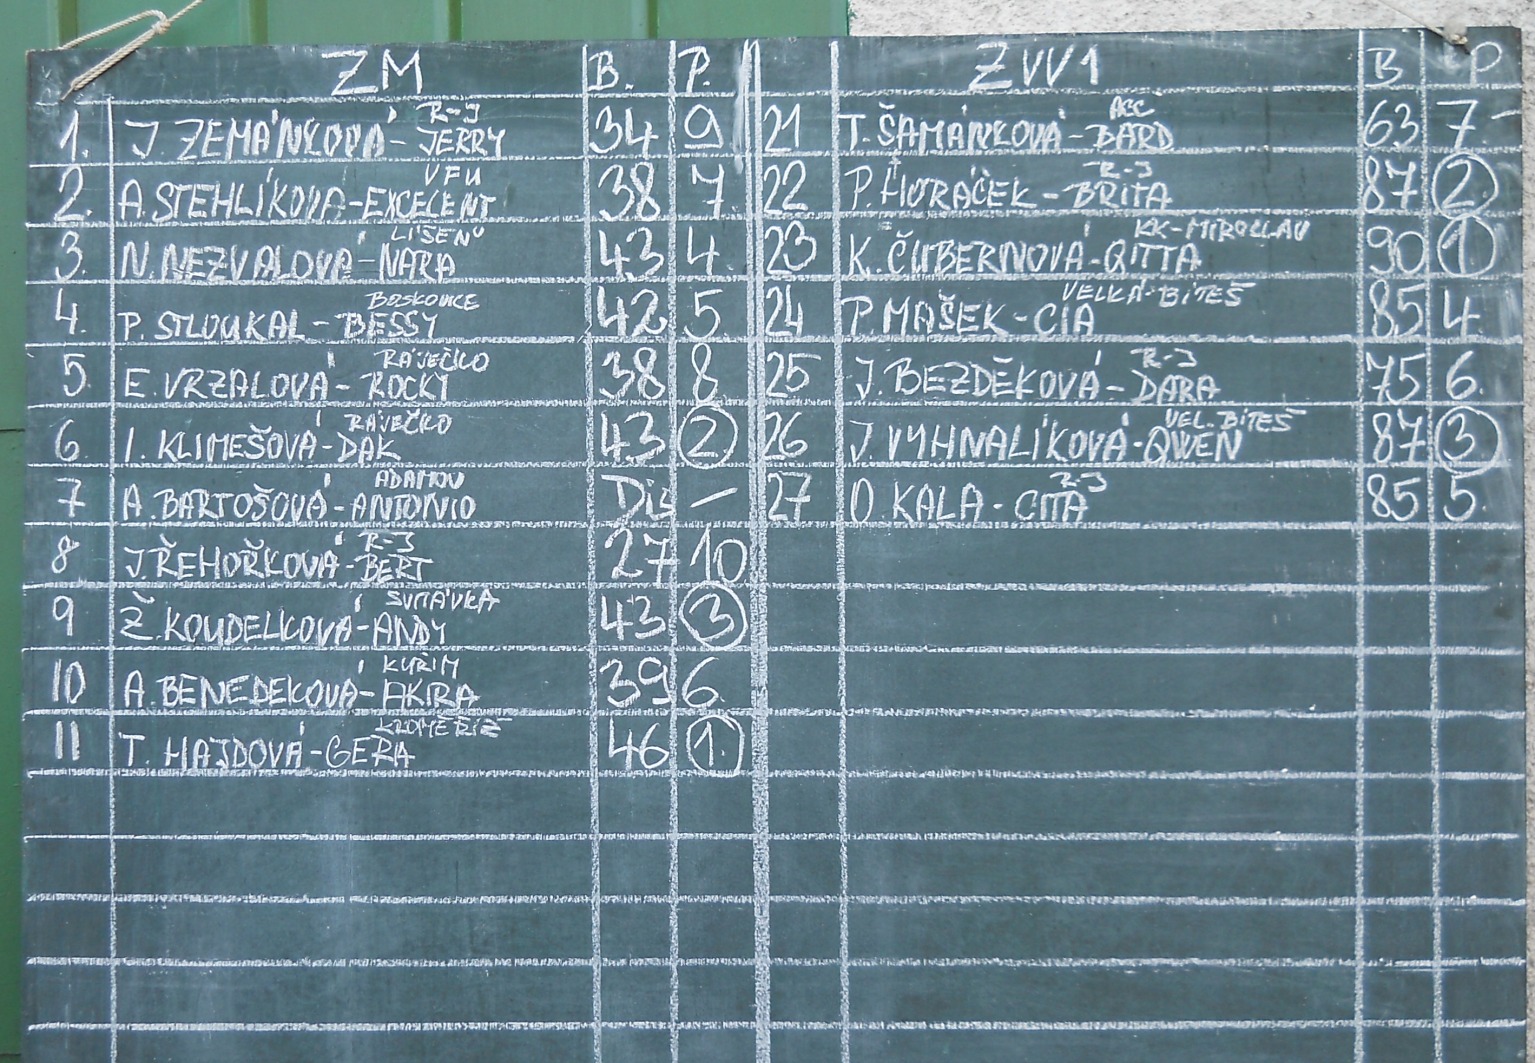 ZM B. P.
R-J
1. J. ZEMÁNKOVÁ - JERRY 34 9
VFU
2. A. STEHLÍKOVA - EXCELENT 38 7
LÍŠEŇ
3. N. NEZVALOVÁ - NARA 43 4
BOSKOVICE
4. P. STLOUKAL - BESSY 42 5.
RÁJEČKO
5 E. VRZALOVÁ - ROCKY 38 8
RÁJEČKO
6 I. KLIMEŠOVÁ - DAK 43 2
ADAMOV
7 A. BARTOŠOVÁ - ANTONIO Dis –
R-J
8 J. ŘEHOŘKOVÁ - BERT 27 10
SVITÁVKA
9 Ž. KOUDELKOVÁ - ANDY 43 3
KUŘIM
10 A. BENEDEKOVÁ - AKIRA 39 6.
KROMĚŘÍŽ
11 T. HAJDOVÁ - GERA 46 1.
ZVV1 B P
ACC
21 T. ŠAMÁNKOVÁ - BARD 63 7
R-J
22 P. HORÁČEK - BRITA 87 2
KK-MIROSLAV
23 K. ČUBERNOVÁ - QITTA 90 1
VELKÁ-BÍTEŠ
24 P. MAŠEK - CIA 85 4
R-J
25 J. BEZDĚKOVÁ - DARA 75 6.
VEL. BÍTEŠ
26 J. VYHNALÍKOVÁ - QWEN 87 3
R-J
27 O. KALA - CITA 85 5.